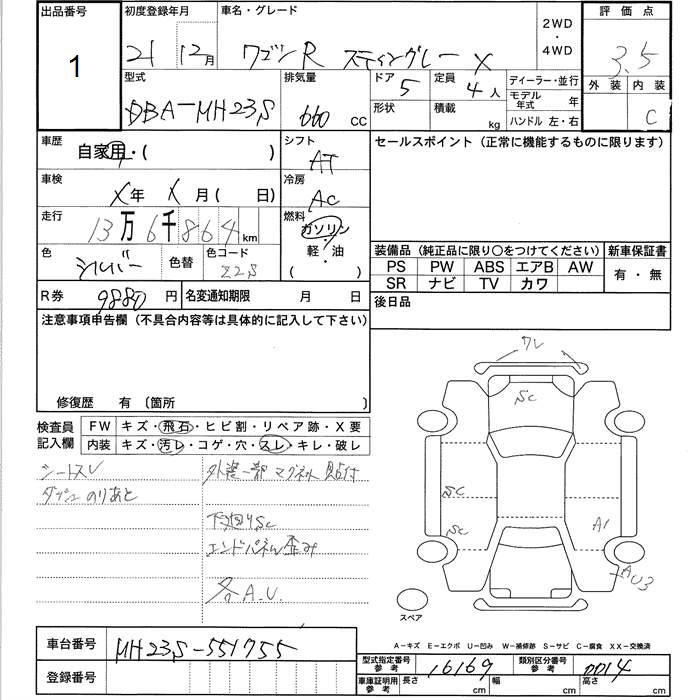 出品番号 初度登録年月 車名・グレード 2WD・4WD 評価点
1 21 12月 ワゴンR スティングレー X 3.5
型式 排気量 ドア 5 定員 4人 ディーラー・並行 外装 内装
DBA-MH23S 660 CC 形状 積載 kg モデル年式 年 C
ハンドル 左・右
車歴 自家用・( ) シフト AT セールスポイント(正常に機能するものに限ります)
車検 X年 X月( 日) 冷房 AC
走行 13万6千864km 燃料 ガソリン
軽・油
( )
色 シルバー 色替 色コード Z2S
装備品(純正品に限り〇をつけてください) 新車保証書
PS PW ABS エアB AW 有・無
SR ナビ TV カワ
R券 9880円 名変通知期限 月 日 後日品
注意事項申告欄(不具合内容等は具体的に記入して下さい)
修復歴 有 〔箇所 〕
検査員記入欄 FW キズ・飛石・ヒビ割・リペア跡・X要
内装 キズ・汚レ・コゲ・穴・スレ・キレ・破レ
シートスレ 外装一部マグネット貼付
ダッシュのりあと
下回りSc
エンドパネル歪み
各A.U.
ワレ
Sc
Sc
Sc
A1
AU3
スペア
A-キズ E-エクボ U-凹み W-補修跡 S-サビ C-腐食 XX-交換済
車台番号 MH23S-551755
登録番号
型式指定番号参考 16169 類別区分番号参考 0014
車庫証明用参考 長さ cm 幅 cm 高さ cm